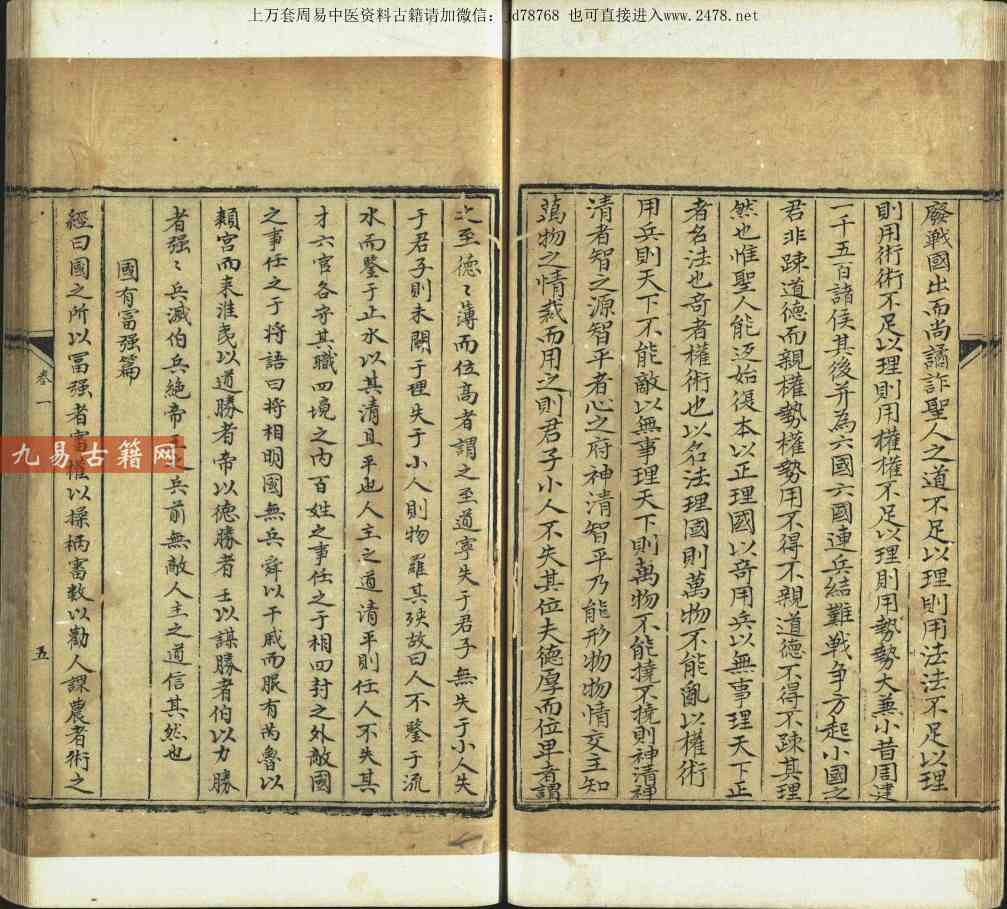 上万套周易中医资料古籍请加微信：jd78768 也可直接进入www.2478.net
廢戰國出而尚譎詐聖人之道不足以理則用法法不足以理
則用術術不足以理則用權權不足以理則用勢勢大兼小昔周建
一千五百諸侯其後并為六國六國連兵結難戰争方起小國之
君非疎道德而親權勢權勢用不得不親道德不得不疎其理
然也惟聖人能返始復本以正理國以奇用兵以無事理天下正
者名法也奇者權術也以名法理國則萬物不能亂以權術
用兵則天下不能敵以無事理天下則萬物不能撓不撓則神清神
清者智之源智平者心之府神清智平乃能形物物情交主知
萬物之情裁而用之則君子小人不失其位夫德厚而位卑者謂
之至德〻薄而位高者謂之至道寧失于君子無失于小人失
于君子則未閑于理失于小人則物羅其殃故曰人不鑒于流
水而鑒于止水以其清且平也人主之道清平則任人不失其
才六官各守其職四境之内百姓之事任之于相四封之外敵國
之事任之于將語曰將相明國無兵舜以干戚而服有苗魯以
頖宮而来淮夷以道勝者帝以德勝者王以謀勝者伯以力勝
者强〻兵滅伯兵絶帝王之兵前無敵人主之道信其然也
國有富强篇
經曰國之所以冨强者審權以操柄審数以勸人課農者術之
卷一
五
九易古籍网